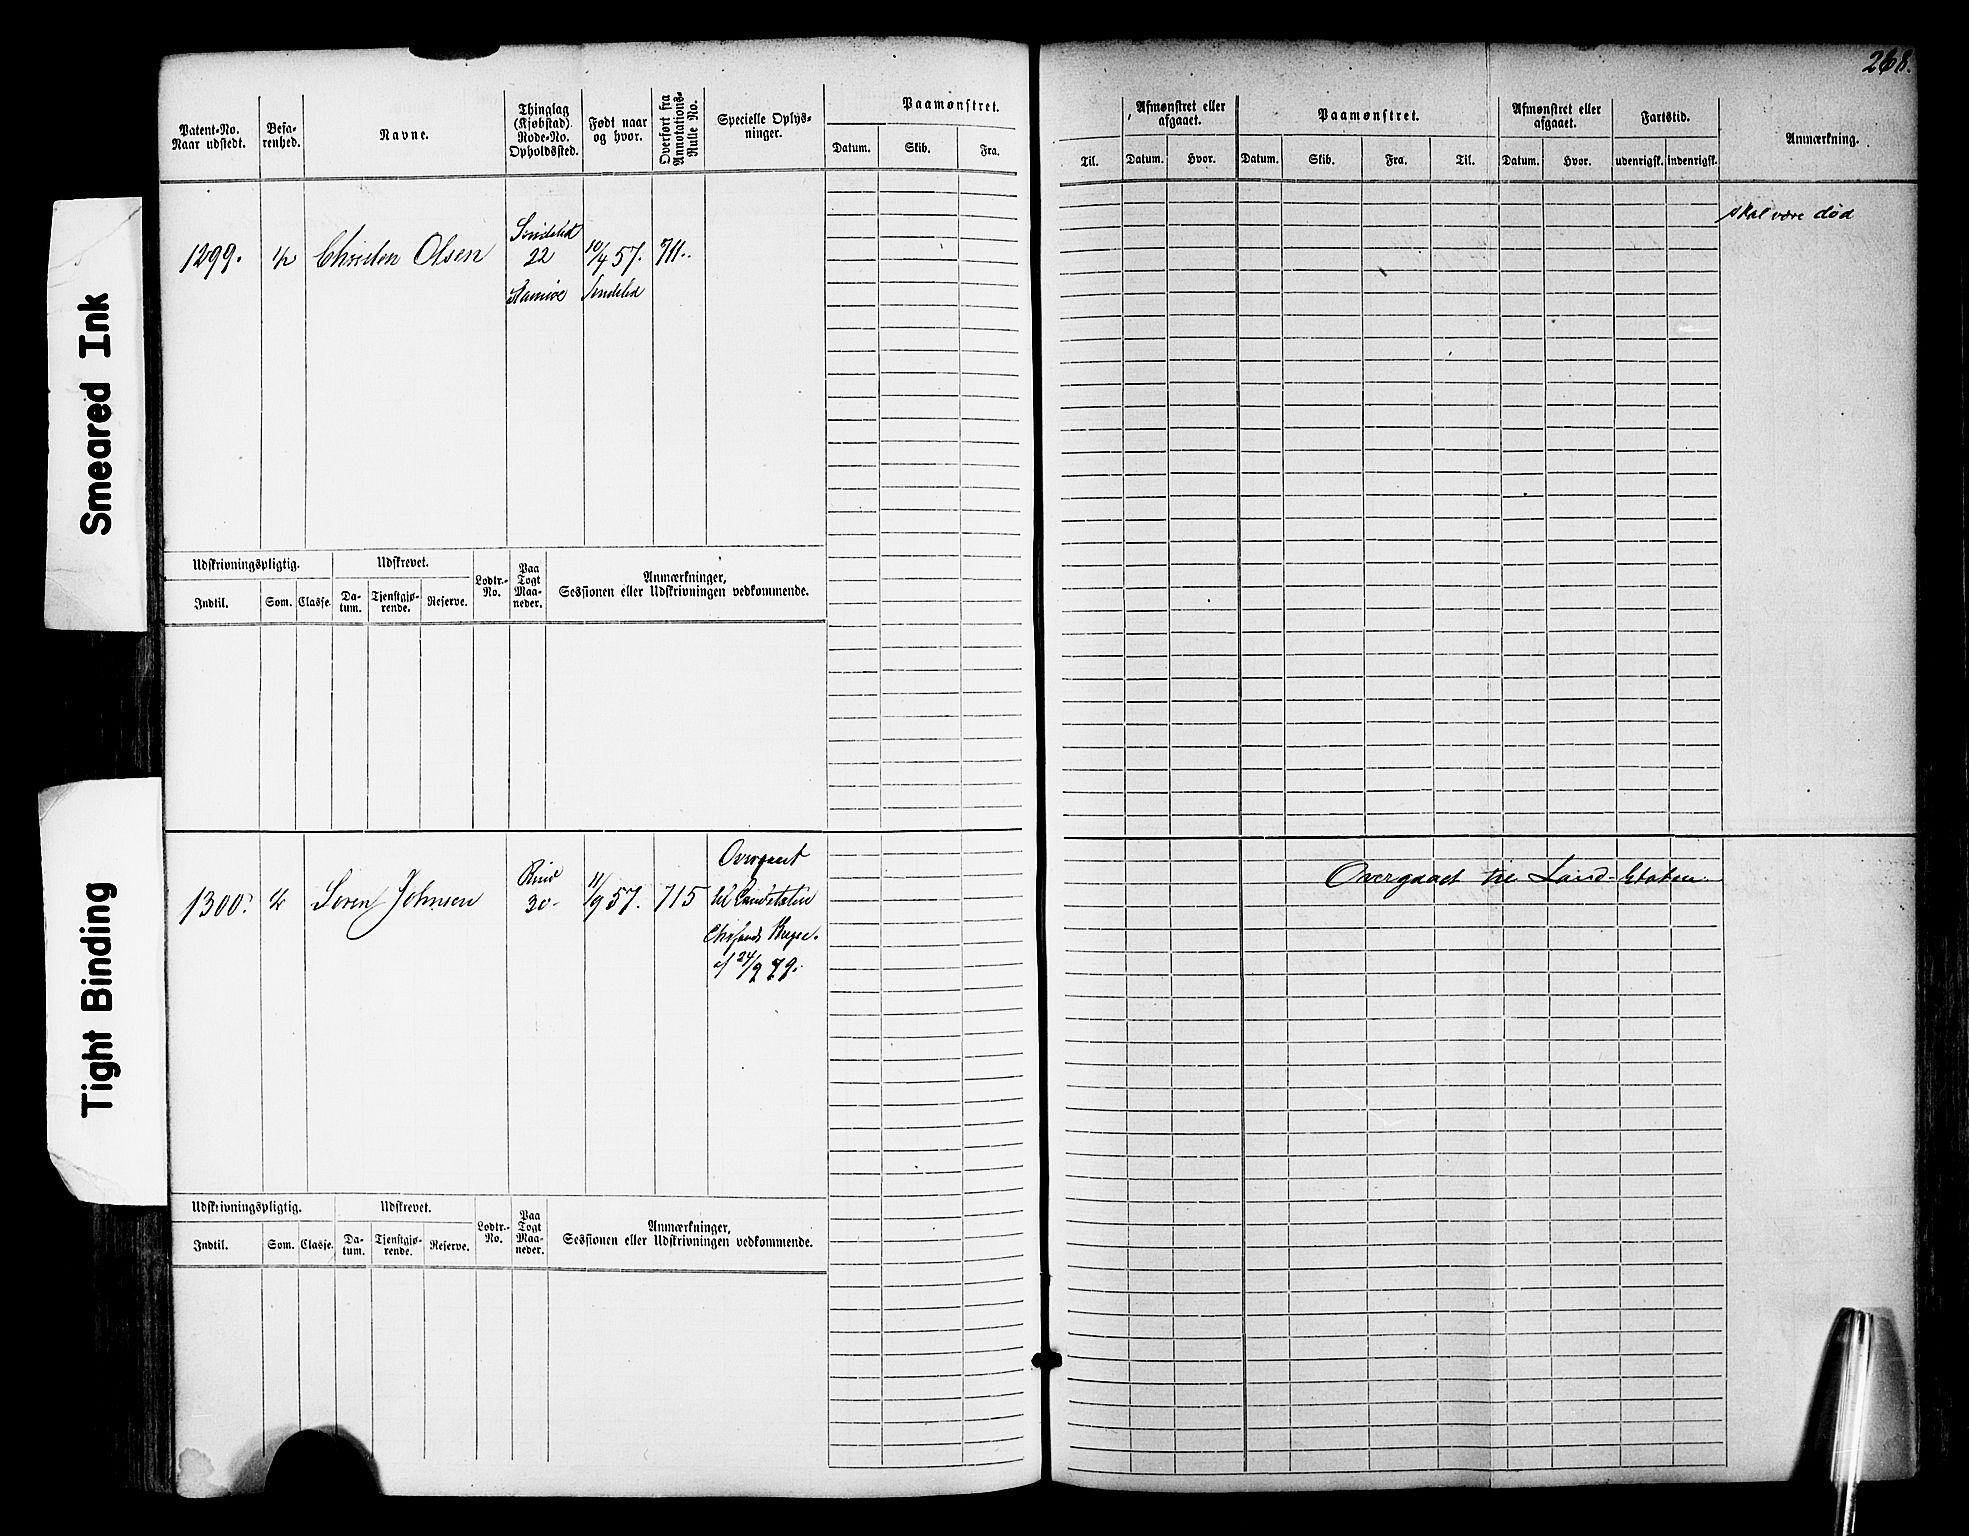 268.
Smeared Ink
Tight Binding
Patent-No.
Naar udstedt.
Befa-
renhed.
Navne.
Thinglag
(Kjøbstad).
Rode-No.
Opholdssted.
Født naar
og hvor.
Overført fra
Annotations-
Rulle No.
Specielle Oplys-
ninger.
Paamønstret.
Datum.
Skib.
Fra.
Til.
Afmønstret eller
afgaaet.
Datum.
Hvor.
Paamønstret.
Datum.
Skib.
Fra.
Til.
Afmønstret eller
afgaaet.
Datum.
Hvor.
Fartstid.
udenrigsk.
indenrigsk.
Anmærkning.
1299.
Christen Olsen
Søndeled
22
10/4 57.
Søndeled
711.
skal være død
Udskrivningspligtig.
Udskrevet.
Lodtr.-
No.
Paa
Togt
Maa-
neder.
Anmærkninger,
Sessionen eller Udskrivningen vedkommende.
Indtil.
Som.
Classe.
Da-
tum.
Tjenstgjø-
rende.
Reserve.
1300.
Søren Johnsen
30.
11/9 57.
715
Overgaaet
til Landetaten
af 24/9 79.
Overgaaet til Land-Etaten.
Udskrivningspligtig.
Udskrevet.
Lodtr.-
No.
Paa
Togt
Maa-
neder.
Anmærkninger,
Sessionen eller Udskrivningen vedkommende.
Indtil.
Som.
Classe.
Da-
tum.
Tjenstgjø-
rende.
Reserve.